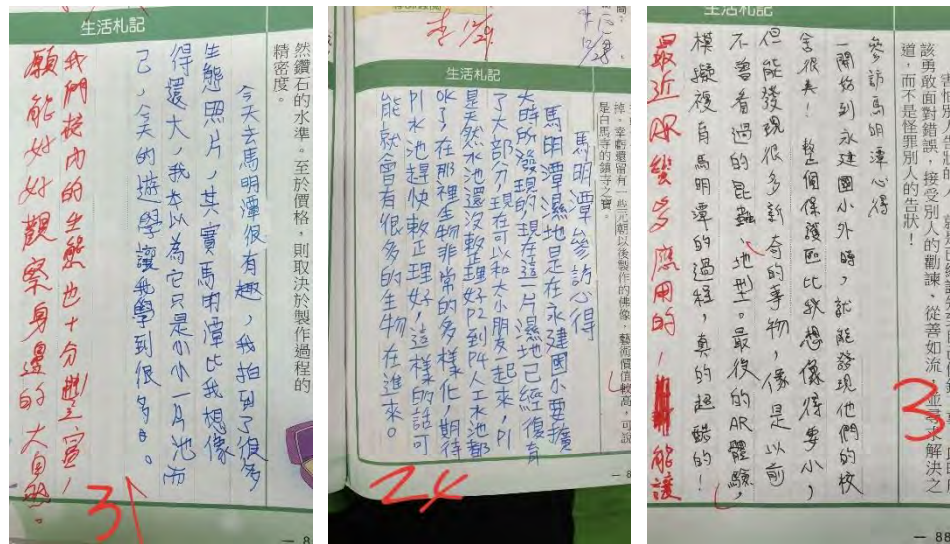 生活札記
然鑽石的水準。至於價格,則取決於製作過程的
精密度。
今天去馬明潭很有趣,我拍到了很多
生態照片,其實馬明潭比我想像
得還大,我本以為它只是小小一片池而
己,今天的遊學讓我學到很多。
我們校內的生態也十分豐富,
願能好好觀察身邊的大自然。
31
— 8
12/29
12/28
生活札記
掉,幸虧還留有一些元朝以後製作的佛像,藝術價值較高,可說
是白馬寺的鎮寺之寶。
馬明潭參訪心得
馬明潭濕地是在永建國小要擴
大時所發現的,現在這一片濕地已經復育
了大部分,現在可以和大小朋友一起來,P1
是天然水池還沒整理好P2到P4人工水池都
OK了,在那裡生物非常的多樣化,期待
P1水池趕快敕正理好,這樣的話可
能就會有很多的生物在進來。
24
— 8
生活札記
該勇敢面對錯誤,接受別人的勸諫、從善如流,並尋求解決之
道,而不是怪罪別人的告狀!
參訪馬明潭心得
一開始到永建國小外時,就能發現他們的校
舍很美!整個保護區比我想像得要小,
但能發現很多新奇的事物,像是以前
不曾看過的昆蟲、地型。最後的AR體驗,
模擬複育馬明潭的過程,真的超酷的!
最近AR蠻多應用的,能讓
3
— 88